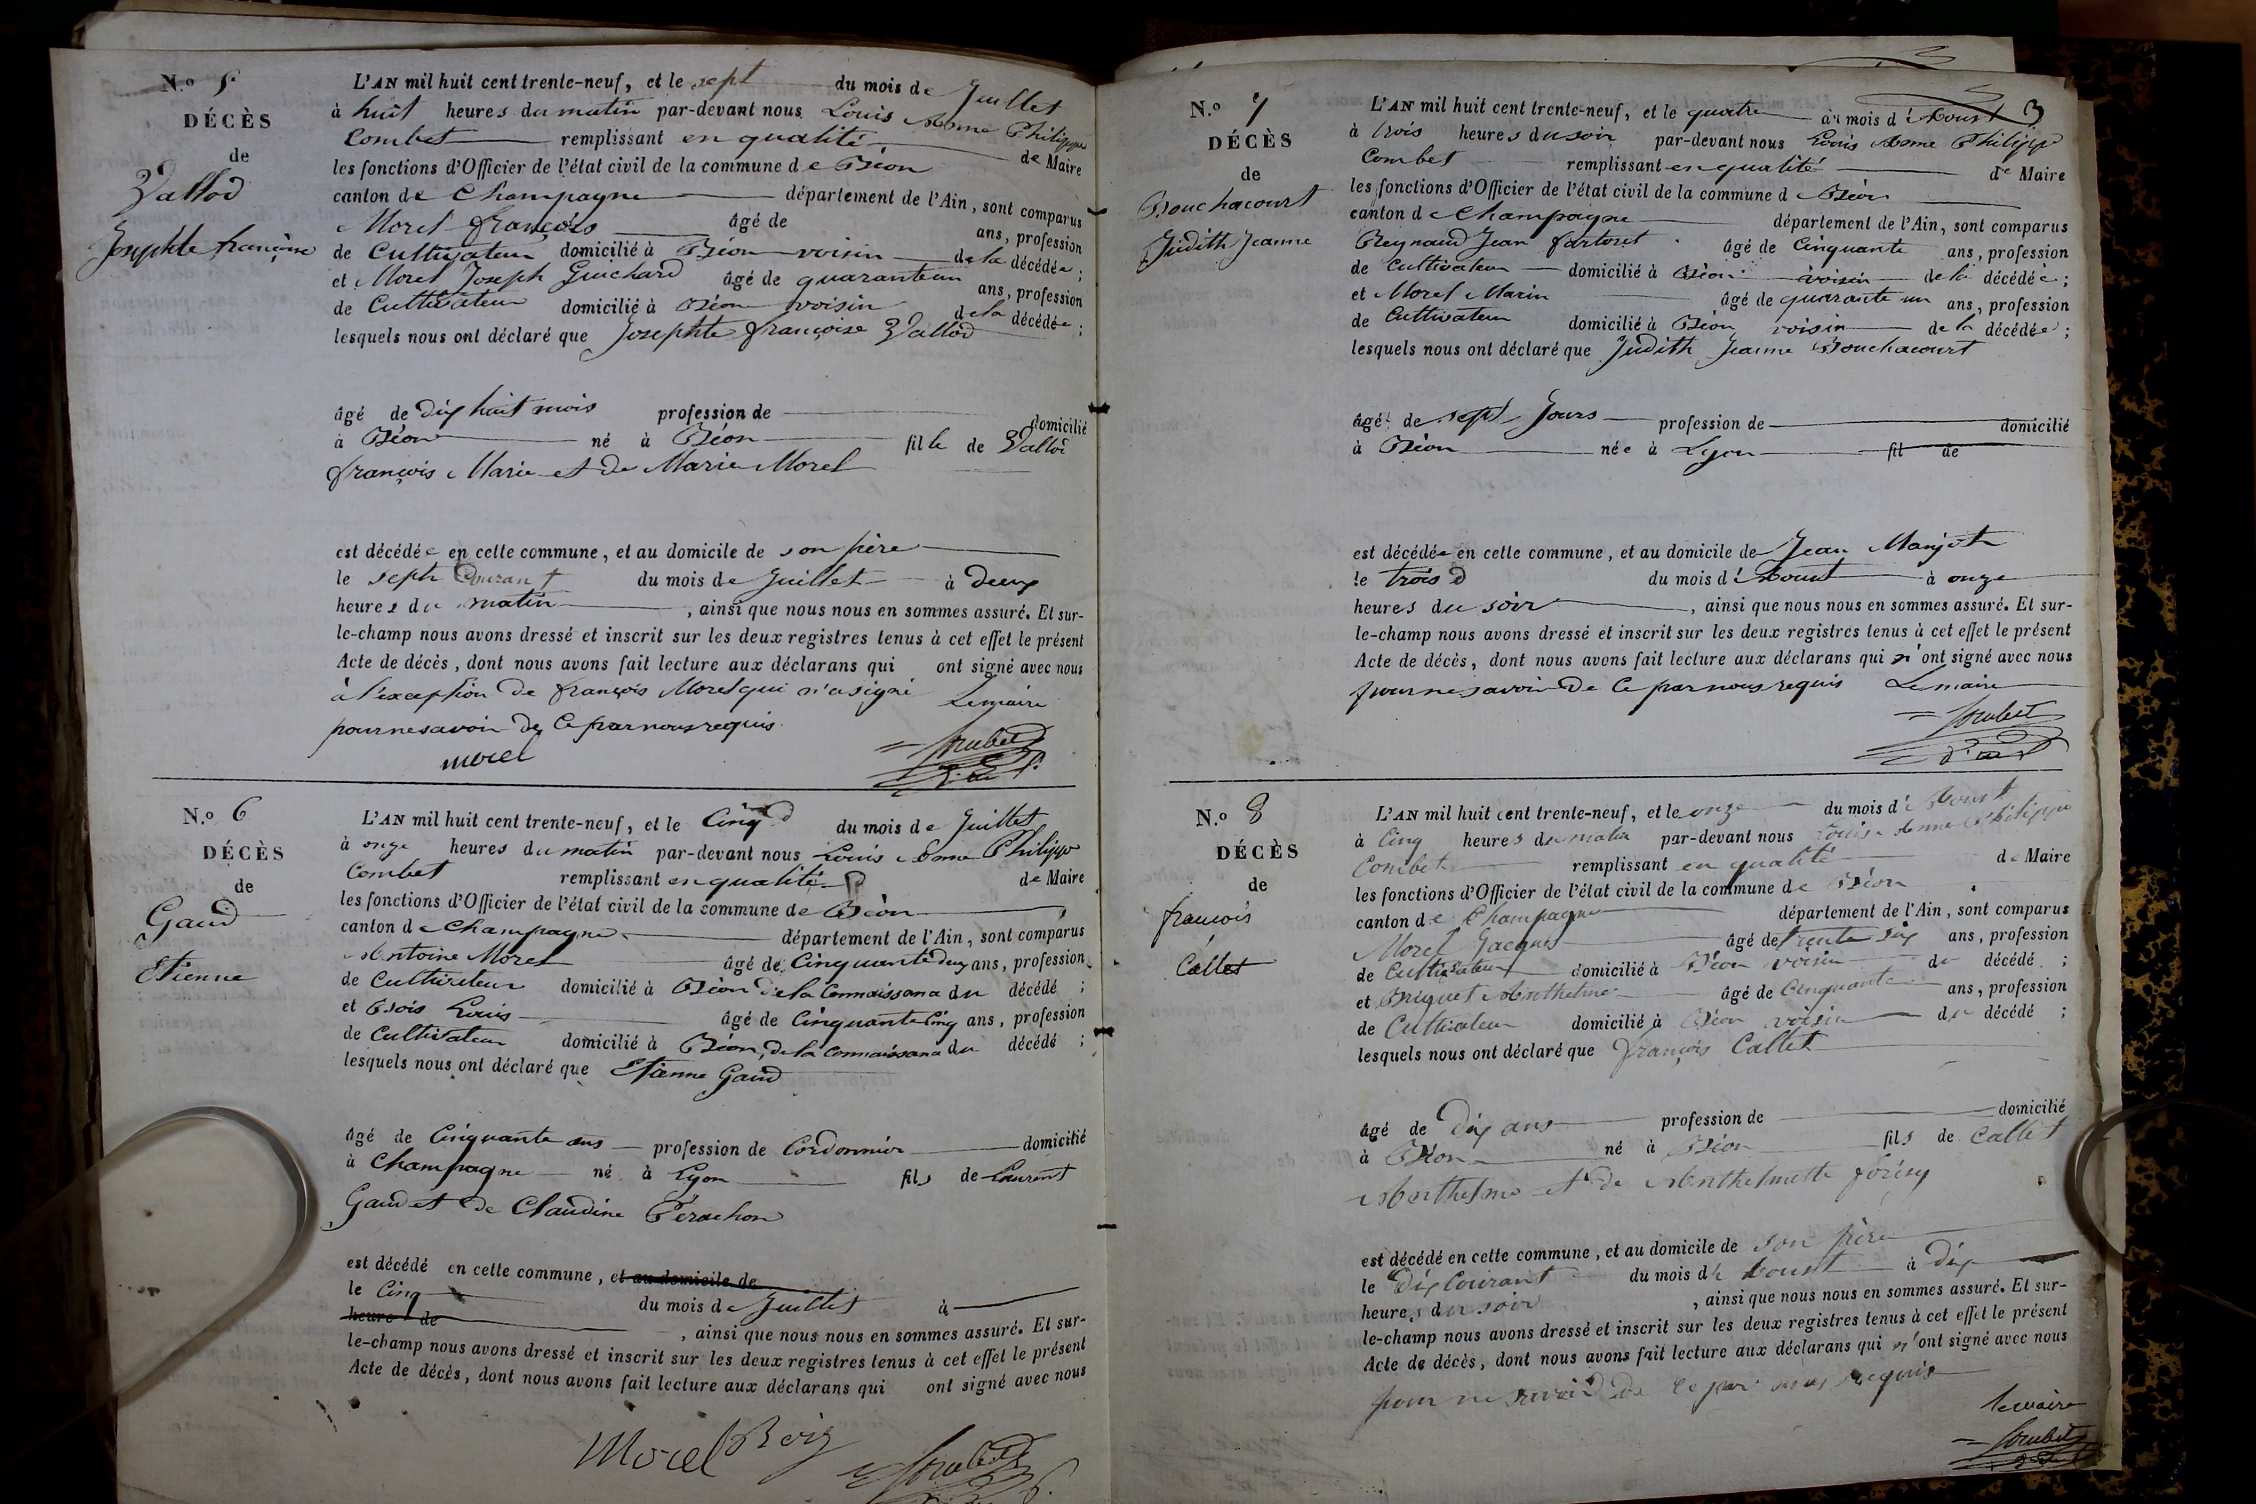 N.o 5
DÉCÈS
de
Vallod
Josephte françoise
L'AN mil huit cent trente-neuf, et le sept du mois de Juillet
à huit heures du matin par-devant nous Louis Anme Philippe
Combet remplissant en qualité de Maire
les fonctions d'Officier de l'état civil de la commune de Béon
canton de Champagne département de l'Ain, sont comparus
Morel françois âgé de ans, profession
de Cultivateur domicilié à Béon voisin de la décédée ;
et Morel Joseph Guichard âgé de quarante un ans, profession
de Cultivateur domicilié à Béon voisin de la décédée ;
lesquels nous ont déclaré que Josephte françoise Vallod
âgé de dix huit mois profession de domicilié
à Béon né à Béon fille de Vallod
françois Marie et de Marie Morel
est décédée en cette commune, et au domicile de son père
le sept Courant du mois de Juillet à deux
heures du matin, ainsi que nous nous en sommes assuré. Et sur-
le-champ nous avons dressé et inscrit sur les deux registres tenus à cet effet le présent
Acte de décès, dont nous avons fait lecture aux déclarans qui ont signé avec nous
à l'exception de françois Morel qui n'a signé Le maire
pour ne savoir de ce par nous requis.
morel Combet
N.o 6
DÉCÈS
de
Gaud
Etienne
L'AN mil huit cent trente-neuf, et le Cinq du mois de Juillet
à onze heures du matin par-devant nous Louis Anme Philippe
Combet remplissant en qualité de Maire
les fonctions d'Officier de l'état civil de la commune de Béon
canton de Champagne département de l'Ain, sont comparus
Antoine Morel âgé de Cinquante deux ans, profession
de Cultivateur domicilié à Béon de la Connaissance du décédé ;
et Bois Louis âgé de Cinquante Cinq ans, profession
de Cultivateur domicilié à Béon, de la connaissance du décédé ;
lesquels nous ont déclaré que Etienne Gaud
âgé de Cinquante ans profession de Cordonnier domicilié
à Champagne né à Lyon fils de Laurent
Gaud et de Claudine Pérachon
est décédé en cette commune, et au domicile de
le Cinq du mois de Juillet à
heure de, ainsi que nous nous en sommes assuré. Et sur-
le-champ nous avons dressé et inscrit sur les deux registres tenus à cet effet le présent
Acte de décès, dont nous avons fait lecture aux déclarans qui ont signé avec nous
Morel Boiz Combet
3
N.o 7
DÉCÈS
de
Bouchacourt
Judith Jeanne
L'AN mil huit cent trente-neuf, et le quatre du mois d'Aoust
à trois heures du soir par-devant nous Louis Anme Philippe
Combet remplissant en qualité de Maire
les fonctions d'Officier de l'état civil de la commune de Béon
canton de Champagne département de l'Ain, sont comparus
Reynaud Jean fortoret âgé de Cinquante ans, profession
de Cultivateur domicilié à Béon voisin de la décédée ;
et Morel Marin âgé de quarante un ans, profession
de Cultivateur domicilié à Béon voisin de la décédée ;
lesquels nous ont déclaré que Judith Jeanne Bouchacourt
âgé de sept Jours profession de domicilié
à Béon née à Lyon fil de
est décédée en cette commune, et au domicile de Jean Manjot
le trois du mois d'Aoust à onze
heures du soir, ainsi que nous nous en sommes assuré. Et sur-
le-champ nous avons dressé et inscrit sur les deux registres tenus à cet effet le présent
Acte de décès, dont nous avons fait lecture aux déclarans qui n'ont signé avec nous
pour ne savoir de ce par nous requis Le maire
Combet
N.o 8
DÉCÈS
de
françois
Callet
L'AN mil huit cent trente-neuf, et le onze du mois d'Aoust
à Cinq heures du matin par-devant nous Louis Anme Philippe
Combet remplissant en qualité de Maire
les fonctions d'Officier de l'état civil de la commune de Béon
canton de Champagne département de l'Ain, sont comparus
Morel Jacques âgé de trente six ans, profession
de Cultivateur domicilié à Béon voisin du décédé ;
et Briquet Anthelme âgé de Cinquante ans, profession
de Cultivateur domicilié à Béon voisin du décédé ;
lesquels nous ont déclaré que françois Callet
âgé de Dix ans profession de domicilié
à Béon né à Béon fils de Callet
Anthelme et de Anthelmette
est décédé en cette commune, et au domicile de son père
le Dix Courant du mois d'Aoust à dix
heures du soir, ainsi que nous nous en sommes assuré. Et sur-
le-champ nous avons dressé et inscrit sur les deux registres tenus à cet effet le présent
Acte de décès, dont nous avons fait lecture aux déclarans qui n'ont signé avec nous
pour ne savoir de ce par nous requis
le maire
Combet